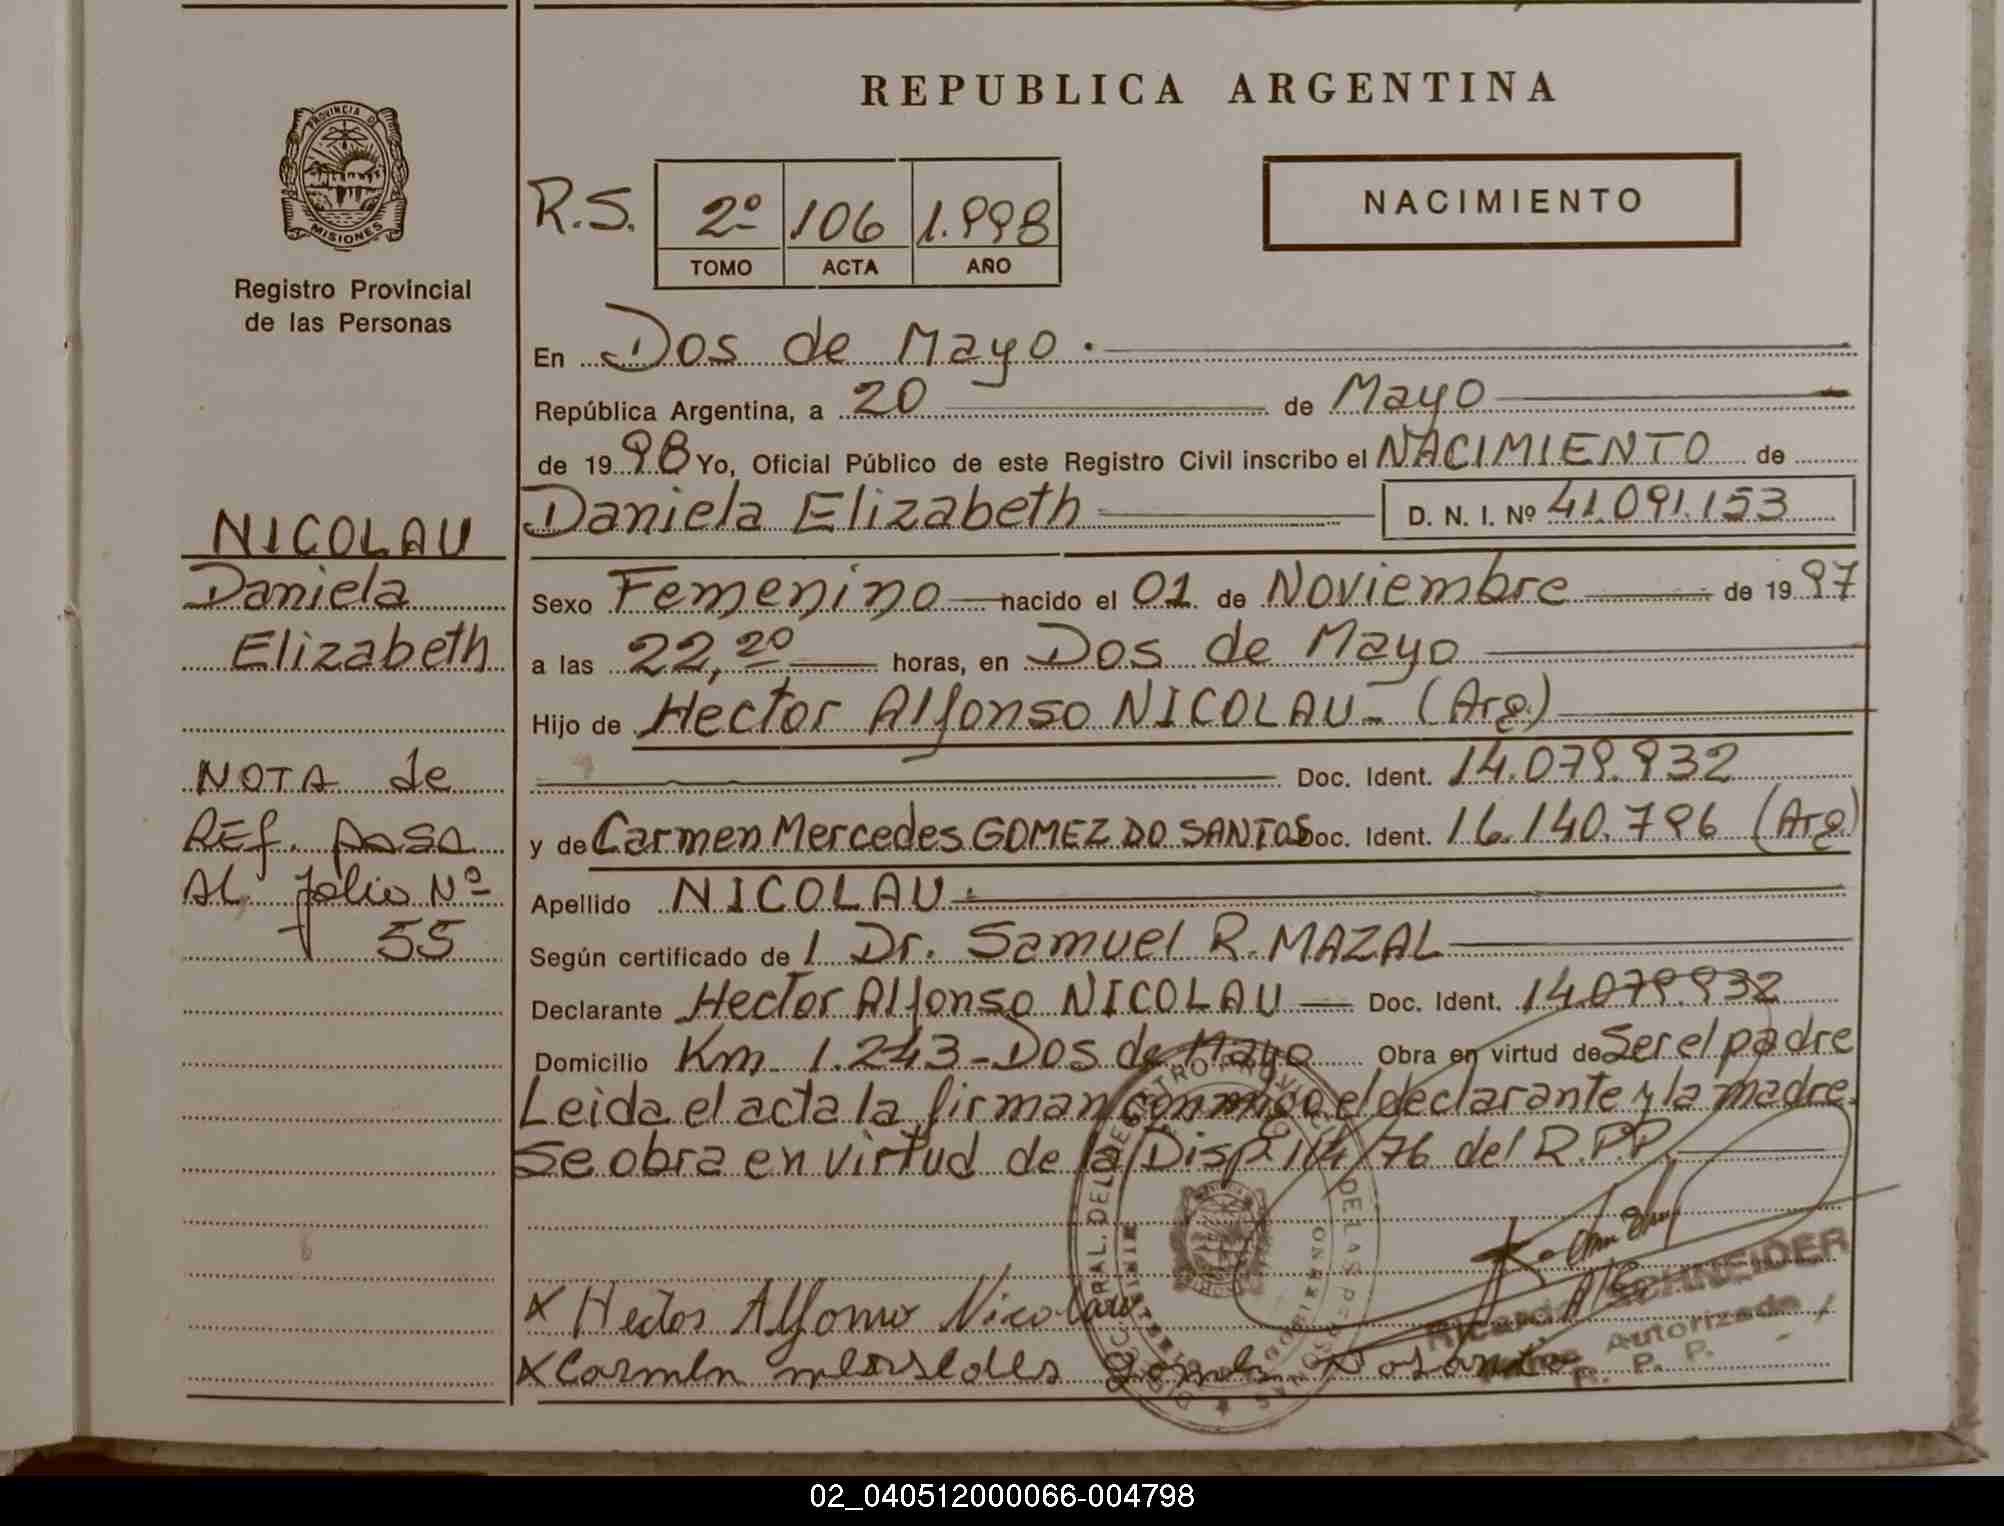 REPUBLICA ARGENTINA
PROVINCIA DE MISIONES
Registro Provincial
de las Personas
R.S. 2º 106 1.998
TOMO ACTA AÑO
NACIMIENTO
En Dos de Mayo.
República Argentina, a 20 de Mayo
de 1998 Yo, Oficial Público de este Registro Civil inscribo el NACIMIENTO de
Daniela Elizabeth D. N. I. Nº 41.091.153
Sexo Femenino nacido el 01 de Noviembre de 1997
a las 22,20 horas, en Dos de Mayo
Hijo de Hector Alfonso NICOLAU- (Arg)
Doc. Ident. 14.079.932
y de Carmen Mercedes GOMEZ DO SANTOS Doc. Ident. 16.140.796 (Arg)
Apellido NICOLAU.
Según certificado de 1 Dr. Samuel R. MAZAL
Declarante Hector Alfonso NICOLAU Doc. Ident. 14.079.932
Domicilio Km. 1.243-Dos de Mayo Obra en virtud de Ser el padre
Leida el acta la firman conmigo el declarante y la madre.
Se obra en virtud de la Disp. 114/76 del R.P.P.
NICOLAU
Daniela
Elizabeth
NOTA de
REf. pasa
AL folio Nº
55
x Hector Alfonso Nicolau
x Carmen mersedes gomes
Ricardo SCHNEIDER
Autorizado
R. P. P.
02_040512000066-004798